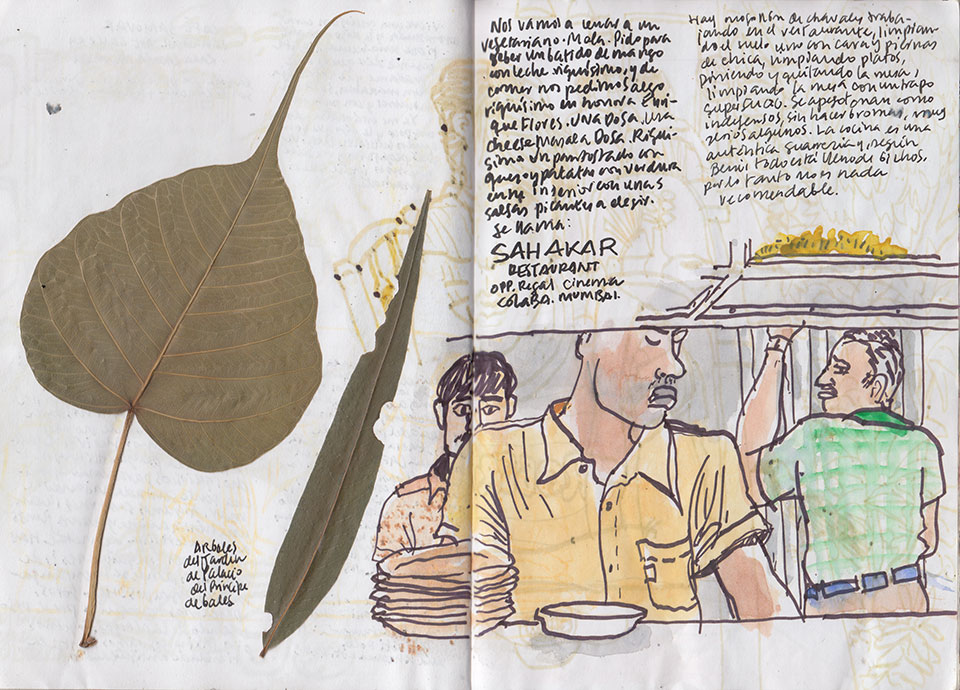 Arboles
del Jardin
de Palacio
del Principe
de Gales
Nos vamos a cenar a un
vegetariano. Mola. Pido para
beber un batido de mango
con leche riquísimo, y de
comer nos pedimos algo
riquísimo en honor a Enri-
que Flores. UNA Dosa. Una
cheese Masala Dosa. Riquí-
simo un pan tostado con
queso y patatas con verdura
en su interior con unas
salsas picantes a elegir.
Se llama:
SAHAKAR
RESTAURANT
OPP. Regal Cinema
COLABA. MUMBAI.
Hay mogollón de chavales traba-
jando en el restaurante, limpian-
do el suelo uno con cara y piernas
de chica, limpiando platos,
poniendo y quitando la mesa,
limpiando la mesa con un trapo
super sucio. Se apelotonan como
indefensos, sin hacer bromas, muy
serios algunos. La cocina es una
auténtica guarrería y, según
todo está lleno de bichos,
por lo tanto no es nada
recomendable.